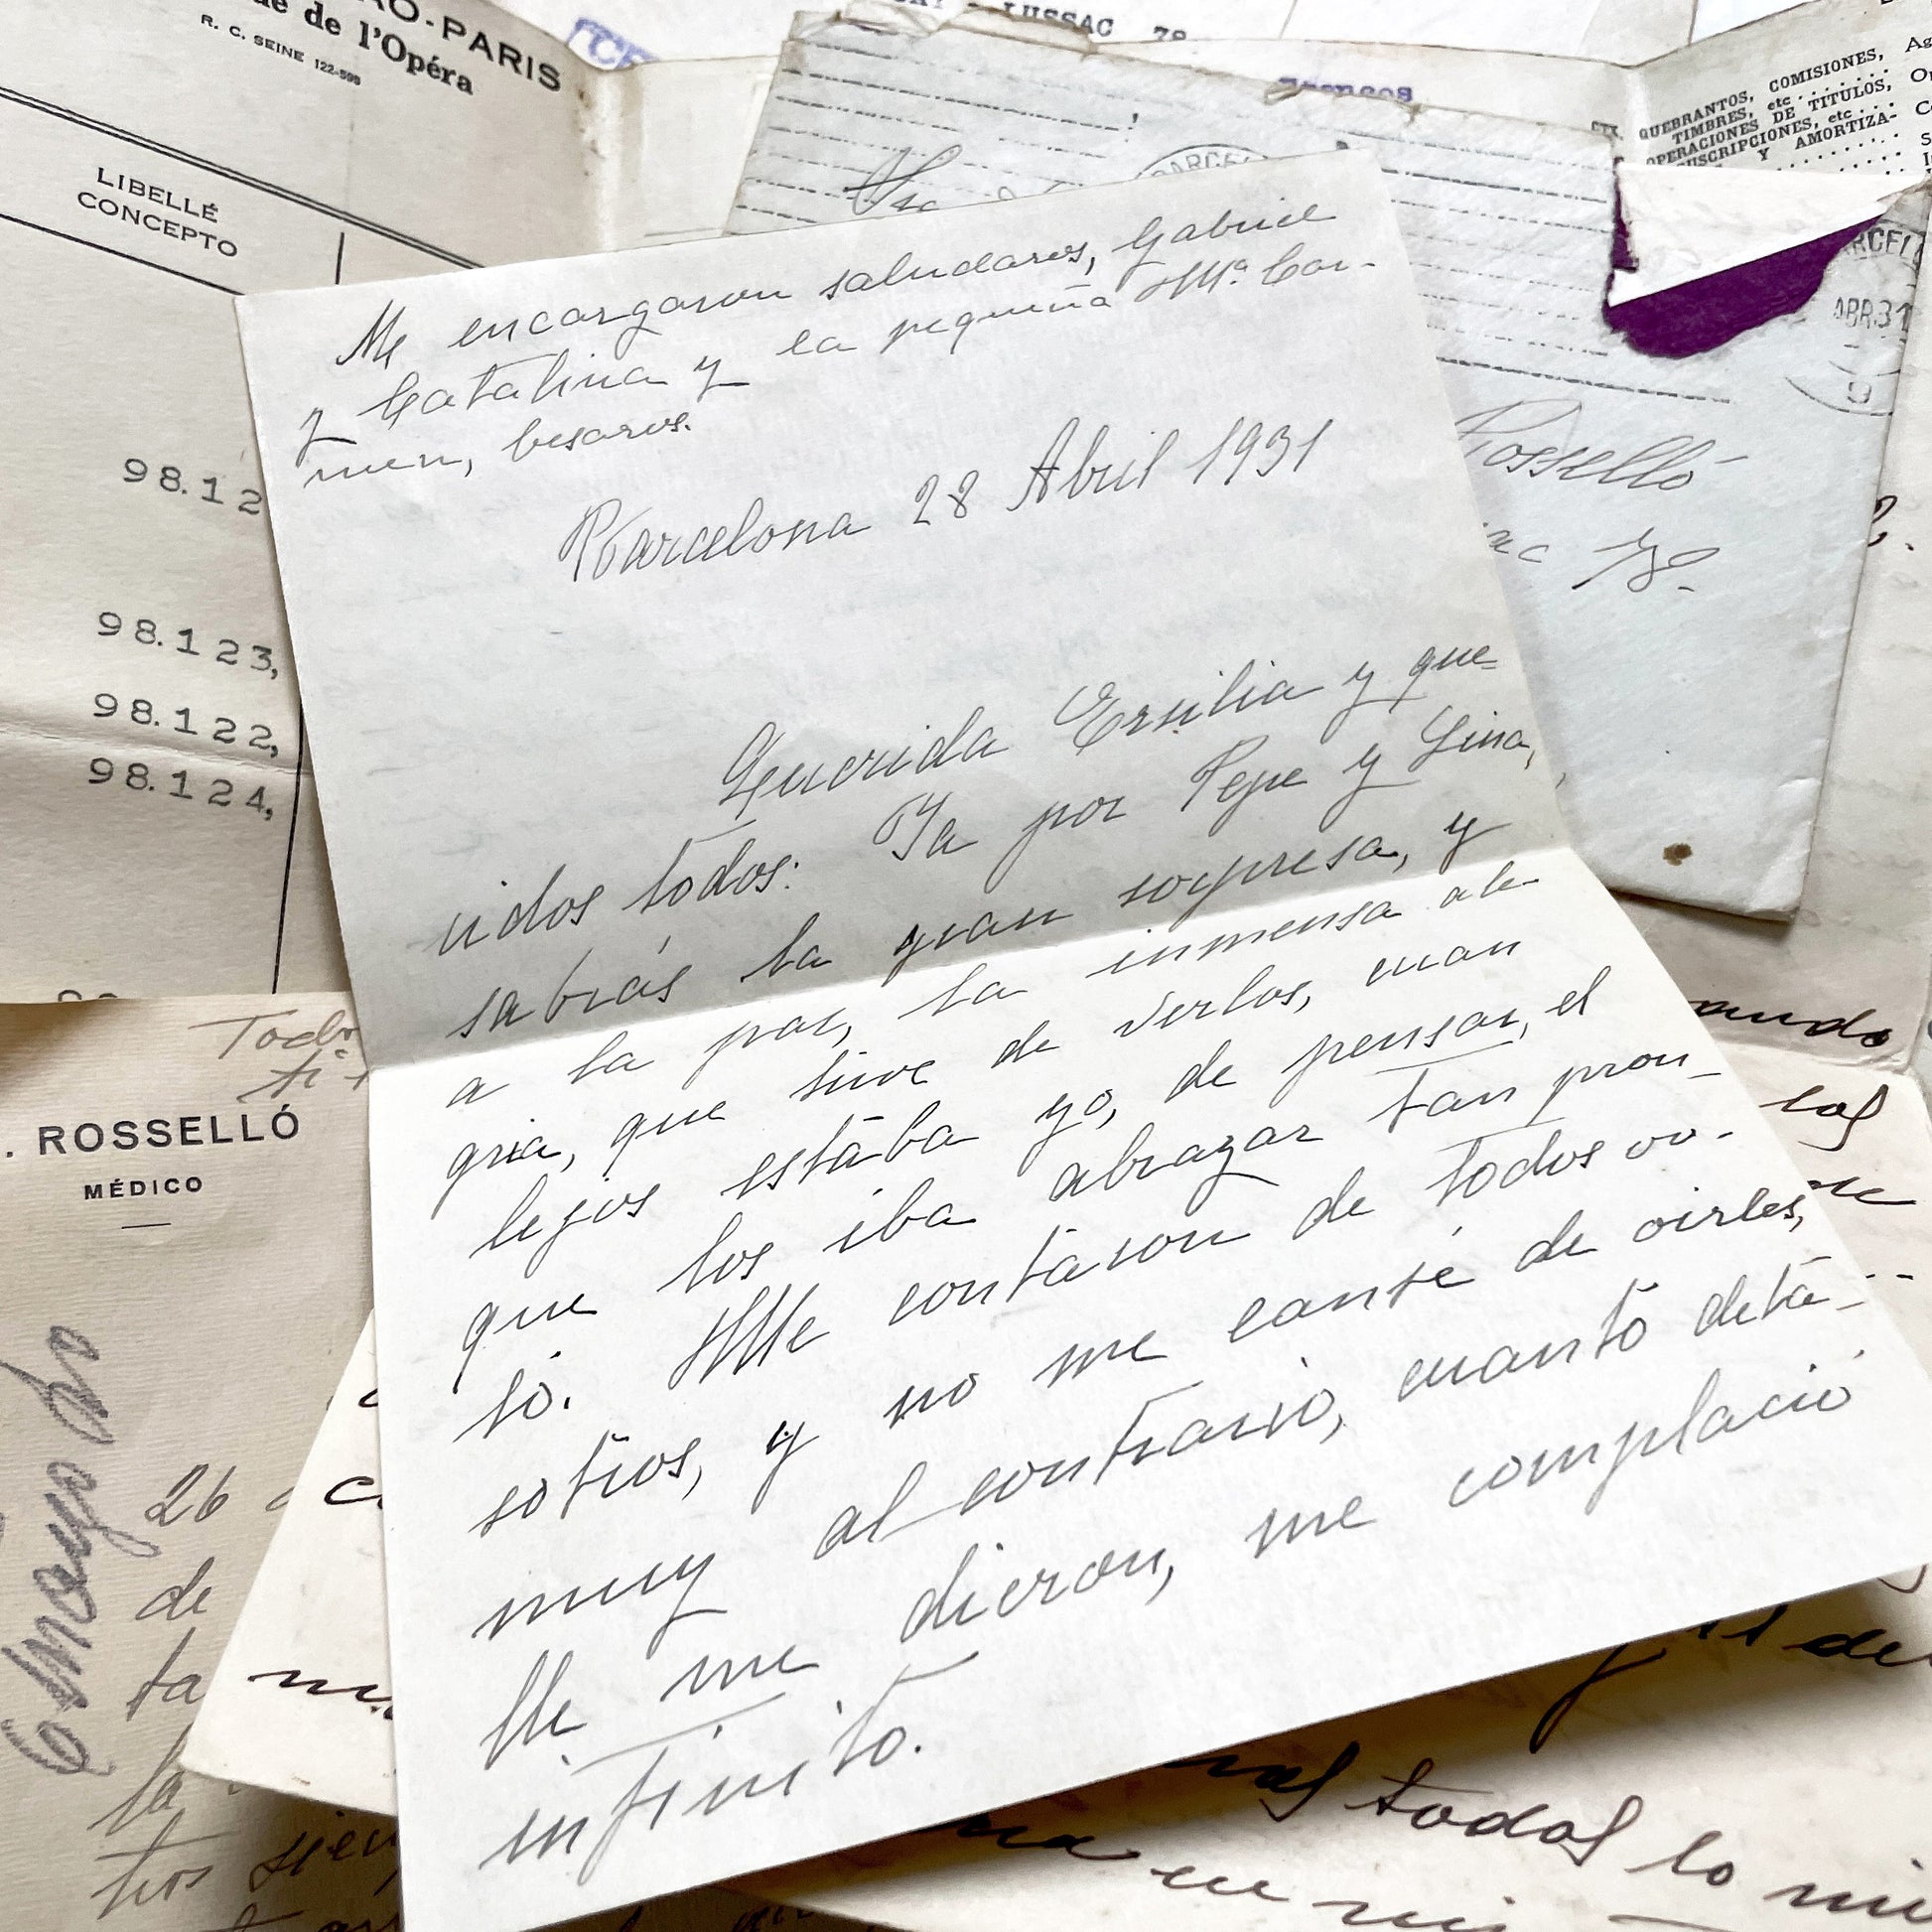 O-PARIS
de l'Opéra
R. C. SEINE 122-595
LIBELLÉ
CONCEPTO
98.12
98.123,
98.122,
98.124,
LUSSAC 78
QUEBRANTOS, COMISIONES,
TIMBRES, etc . . . . . .
OPERACIONES DE TITULOS,
SUSCRIPCIONES, etc . . .
Y AMORTIZA-
ABR.31
Rosselló
78.
Me encargaron saludaros, Gabriel
y Catalina y la pequeña Mª. Car-
men, besaros.
Barcelona 28 Abril 1931
Querida Ersilia y que-
ridos todos: Ya por Pepe y Lina,
sabrás la gran sorpresa, y
a la par, la inmensa ale-
gria, que tuve de verlos, cuan
lejos estaba yo, de pensar, el
que los iba abrazar tan pron-
to. Me contaron de todos vo-
sotros, y no me cansé de oirles,
muy al contrario, cuanto deta-
lle me dieron, me complació
infinito.
Todo
. ROSSELLÓ
MÉDICO
Mayo
26
de
ta
la
tros
ando
los
de
todos lo